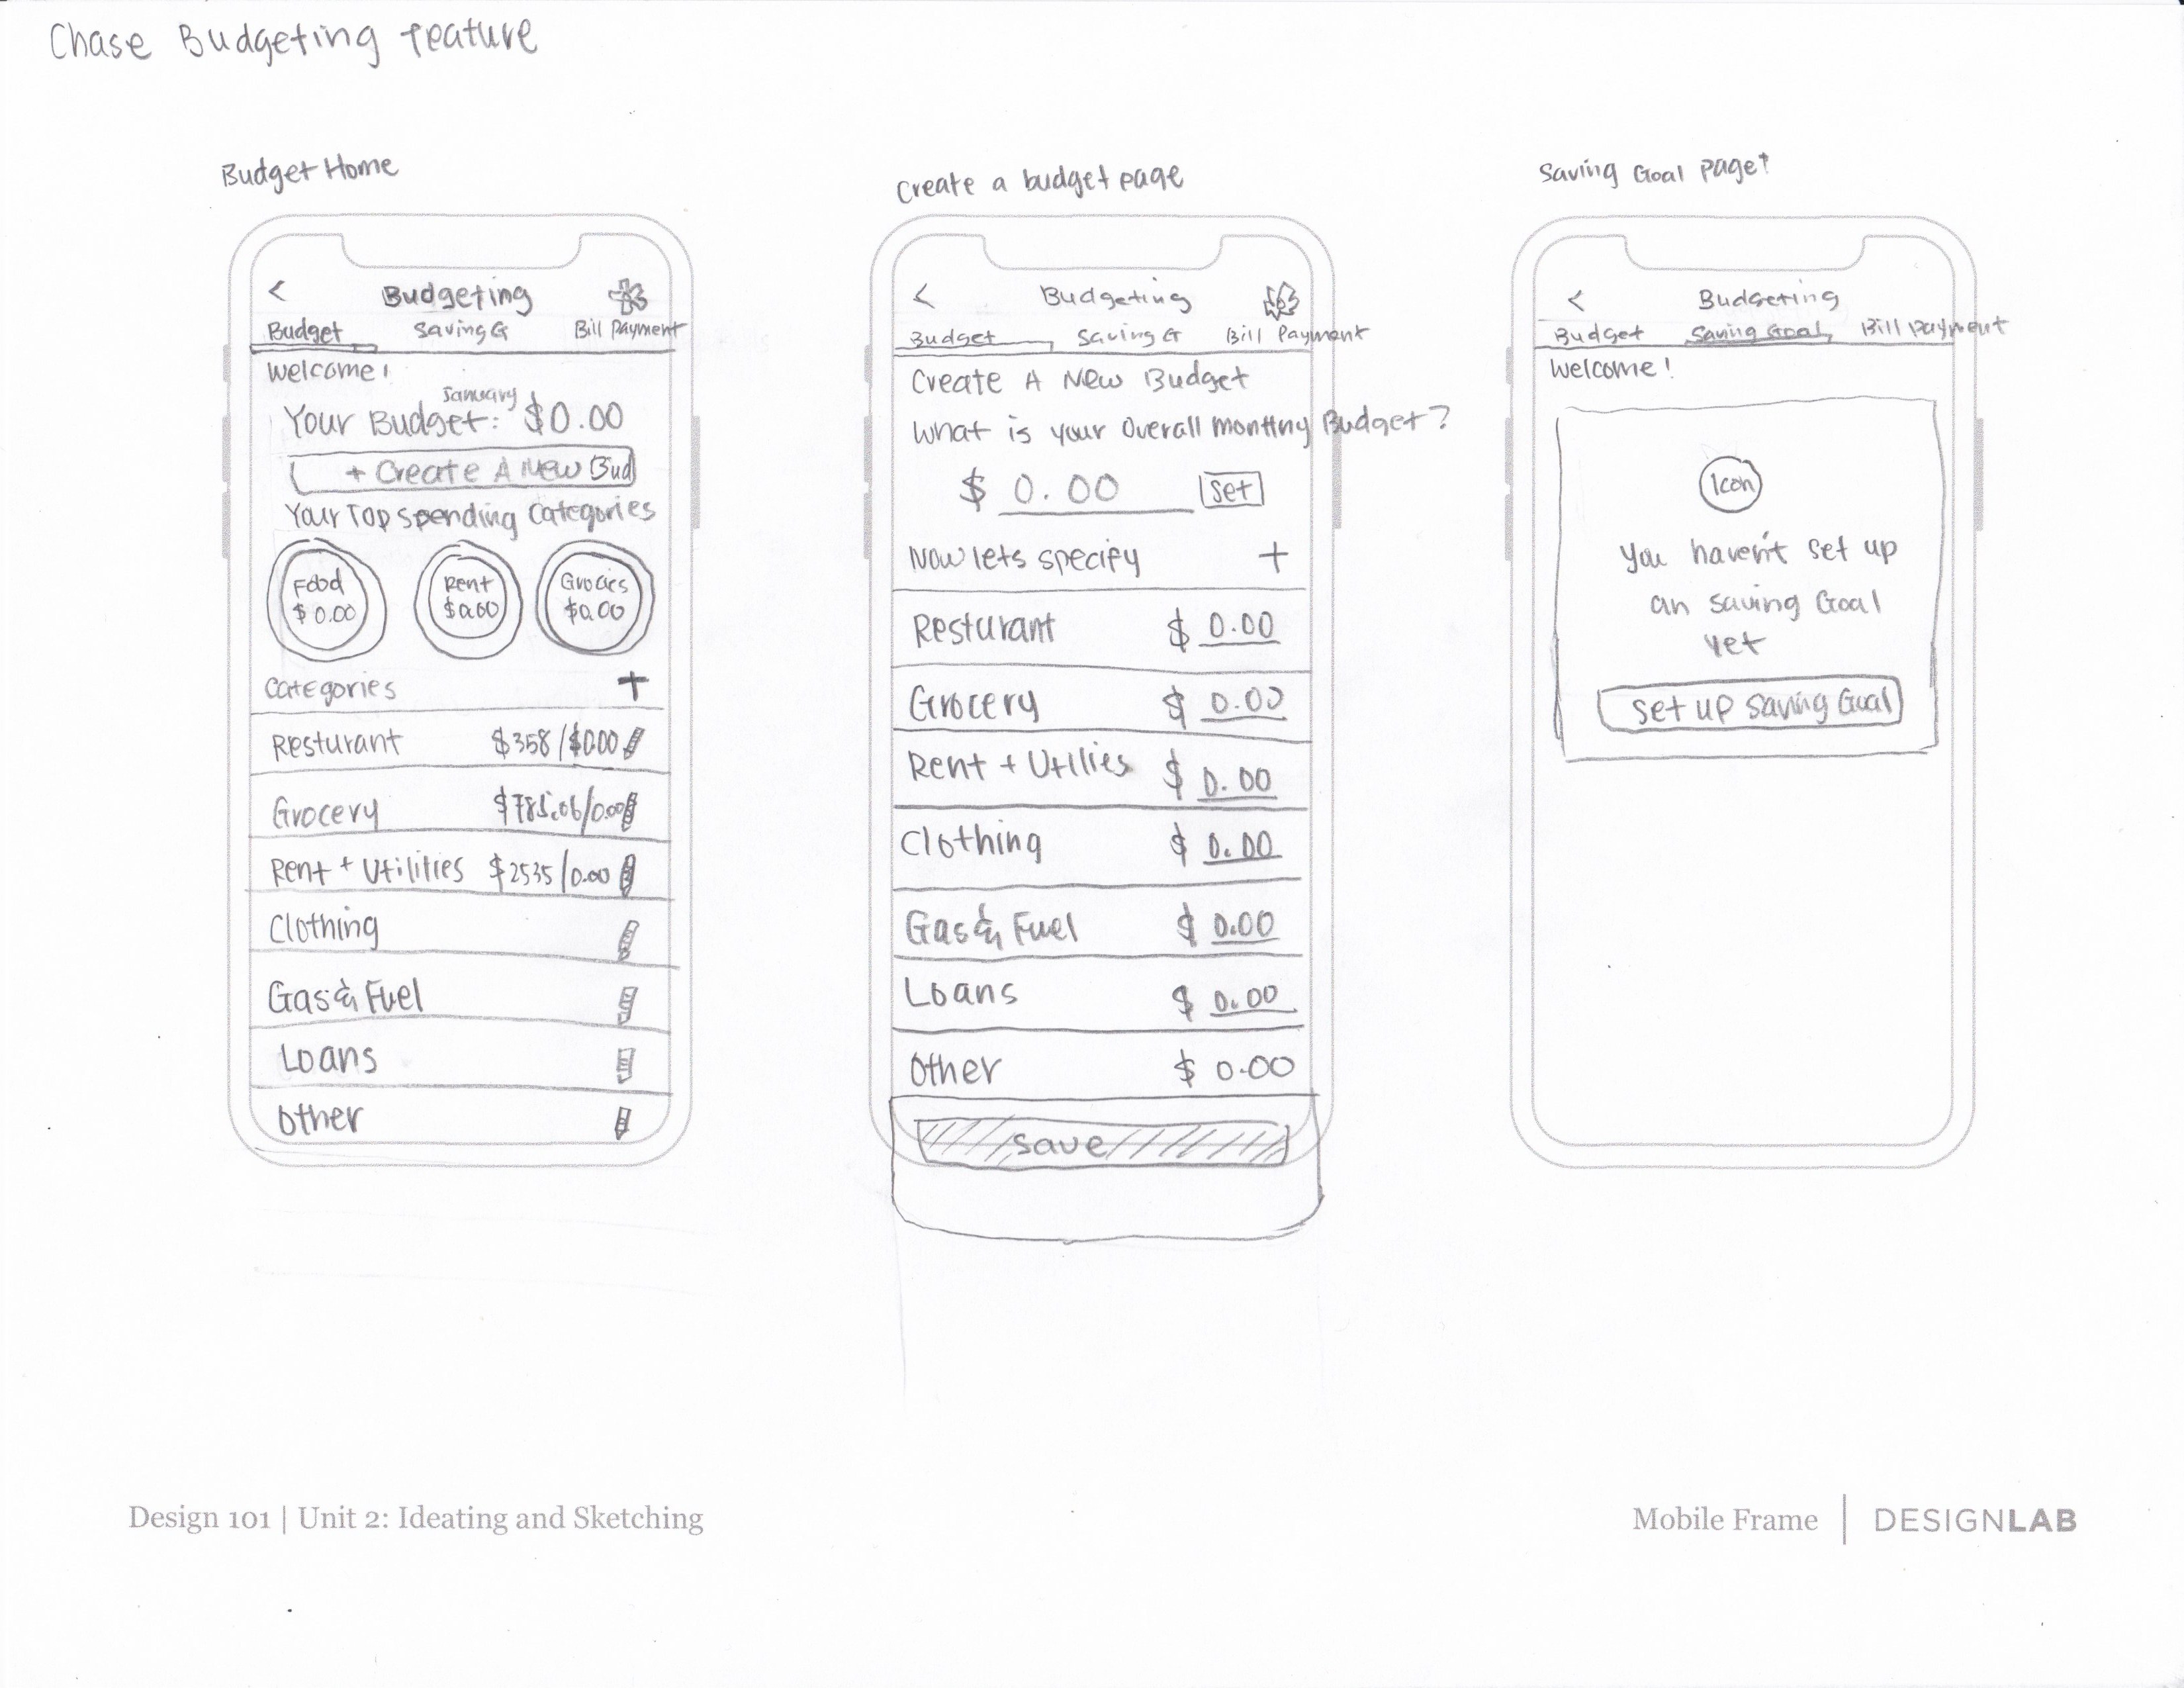 Chase Budgeting feature
Budget Home
<
Budgeting
Budget Saving G Bill Payment
Welcome!
January
Your Budget: $0.00
+ Create A New Bud
Your Top spending categories
Food
$0.00
Rent
$0.00
Grocies
$0.00
Categories +
Resturant $358/$0.00
Grocery $785.06/0.00
Rent + Utilities $2535/0.00
Clothing
Gas & Fuel
Loans
Other
Create a budget page
<
Budgeting
Budget Saving G Bill Payment
Create A New Budget
What is your Overall monthy Budget?
$ 0.00 Set
Now lets specify +
Resturant $ 0.00
Grocery $ 0.00
Rent + Utilies $ 0.00
Clothing $ 0.00
Gas & Fuel $ 0.00
Loans $ 0.00
Other $ 0.00
Save
Saving Goal page
<
Budgeting
Budget Saving Goal Bill Payment
Welcome!
Icon
You haven't set up
an saving Goal
yet
Set up Saving Goal
Design 101 | Unit 2: Ideating and Sketching
Mobile Frame | DESIGNLAB